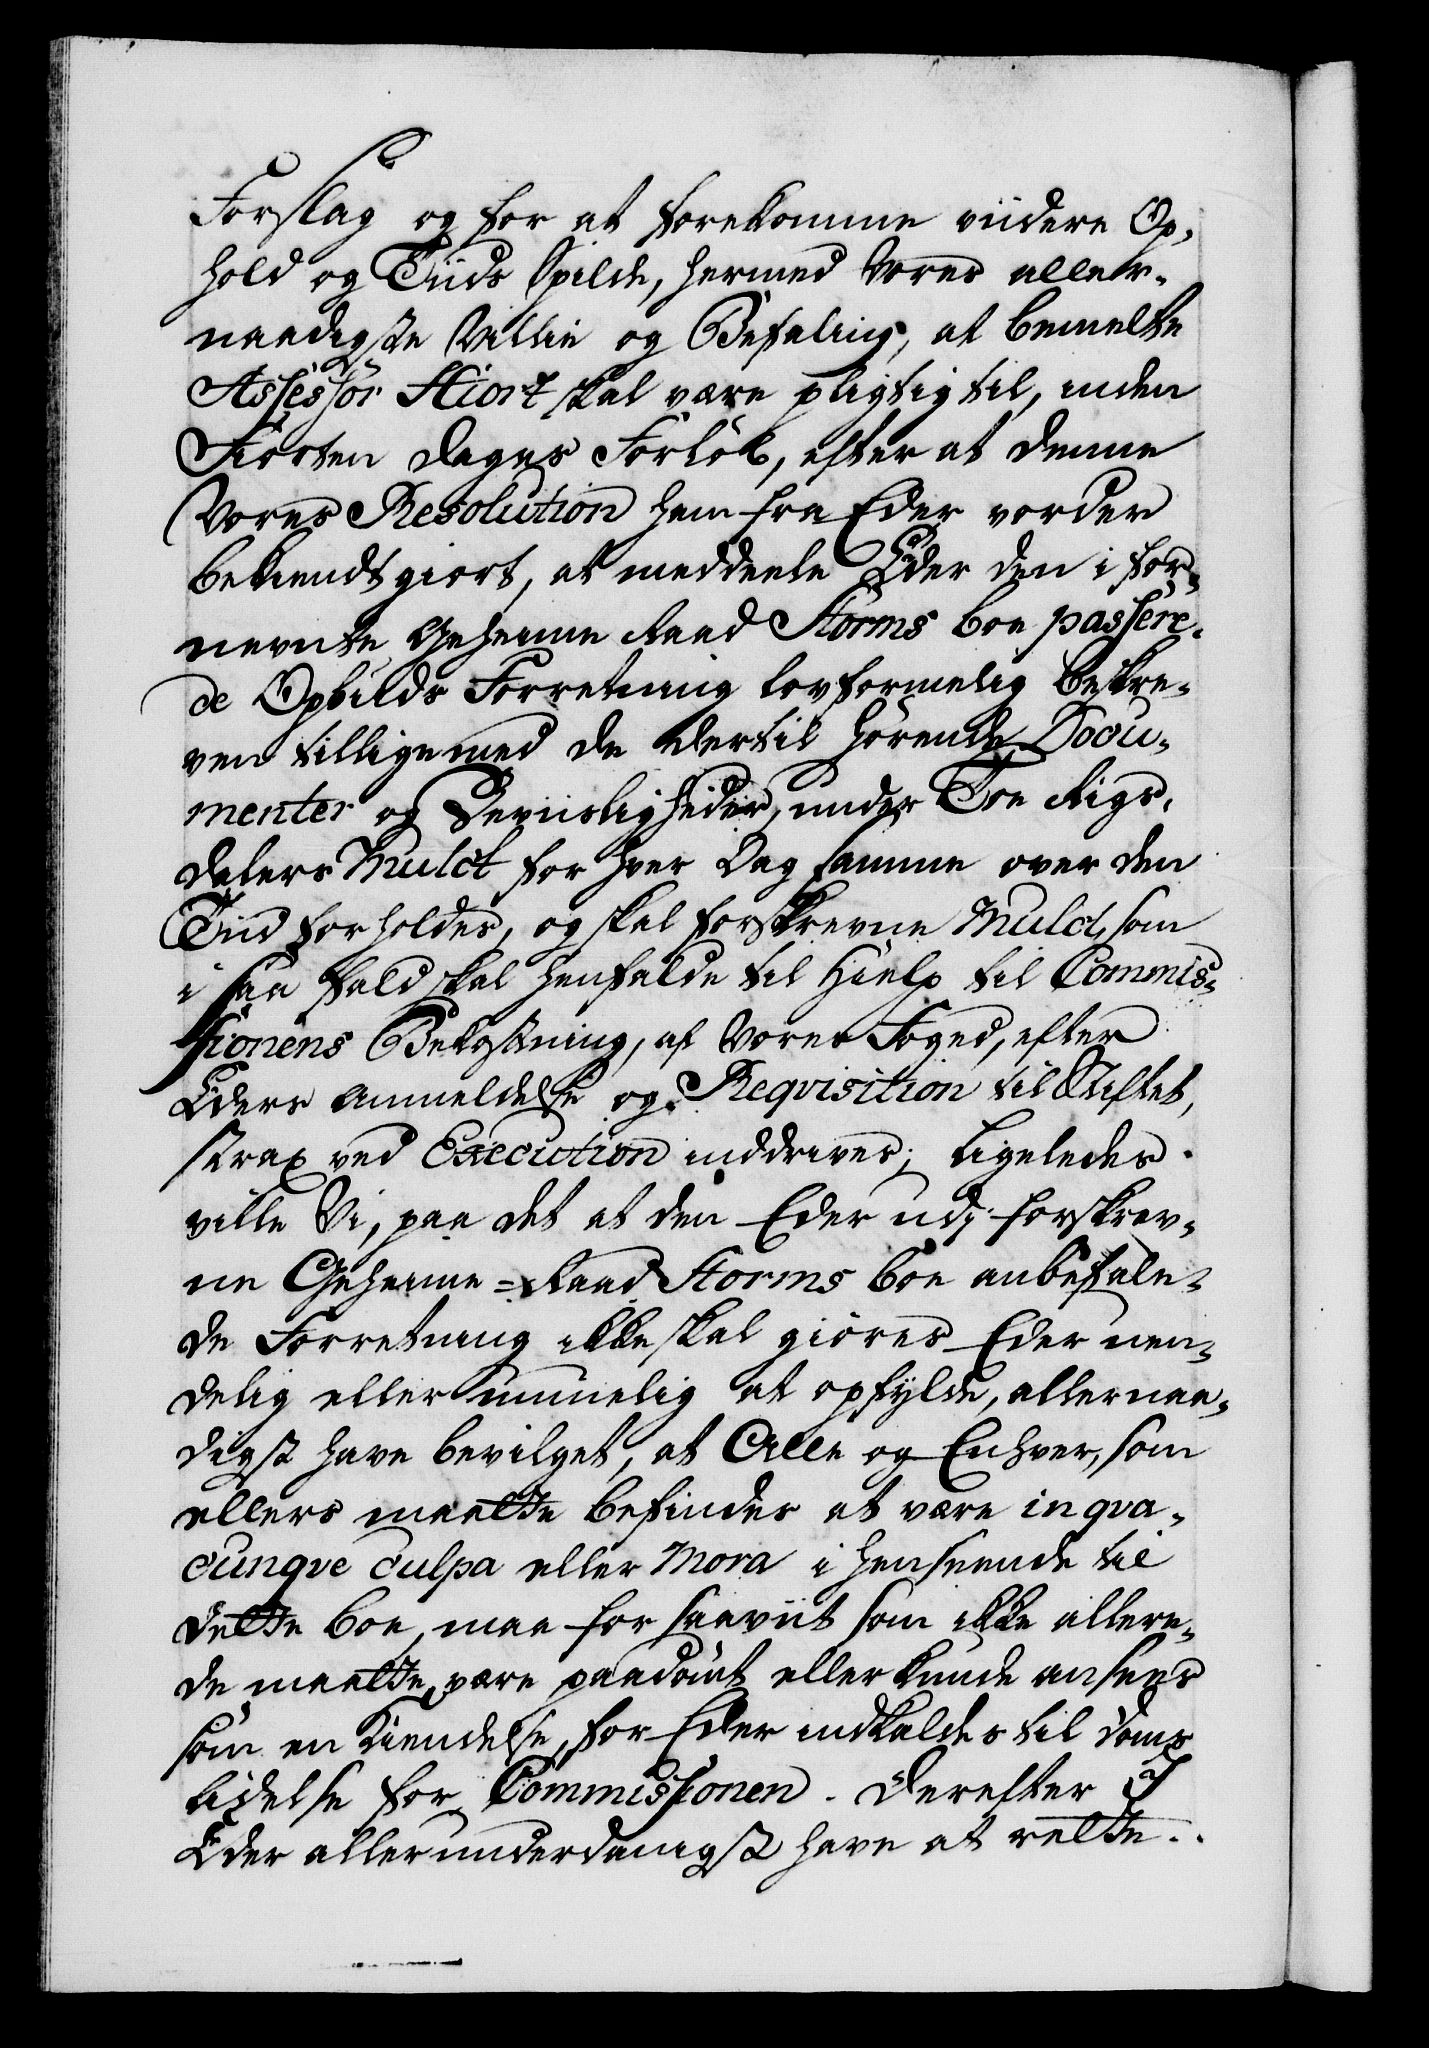 Forslag og for at forekomme viidere Op-
hold og Tiids Spilde, hermed Vores aller-
naadigste Villie og Befaling, at bemelte
Assessor Hiort skal være pligtig til, inden
Fiorten Dages Forløb, efter at denne
Vores Resolution ham fra Eder vorder
bekiendtgiort, at meddeele Eder den i for-
nevnte Geheime Raad Storms boe passere-
de Opbuds Forretning lovformelig beskre-
ven tilligemed de dertil hørende Docu-
menter og Beviisligheder, under Toe Rigs-
dalers Mulct for hver Dag samme over den
Tiid forholdes, og skal forskrevne Mulct, som
i saa fald skal henfalde til Hielp til Commis-
sionens Bekostning, af Vores Foged, efter
Eders Anmeldelse og Reqvisition til Stiftet,
strax ved Execution inddrives; Ligeledes
ville Vi, paa det at den Eder udj forskrev-
ne Geheime-Raad Storms boe anbefale-
de Forretning ikke skal giøres Eder uen-
delig eller umuelig at opfylde, allernaa-
digst have bevilget, at Alle og Enhver, som
ellers maatte befindes at være in qva-
cunqve culpa eller Mora i henseende til
dette boe, maa for saaviit som ikke allere-
de maatte være paadømt eller kunde ansees
som en Kiendelse, for Eder indkaldes til Doms
lidelse for Commissionen. Derefter I
Eder allerunderdanigst have at rette..